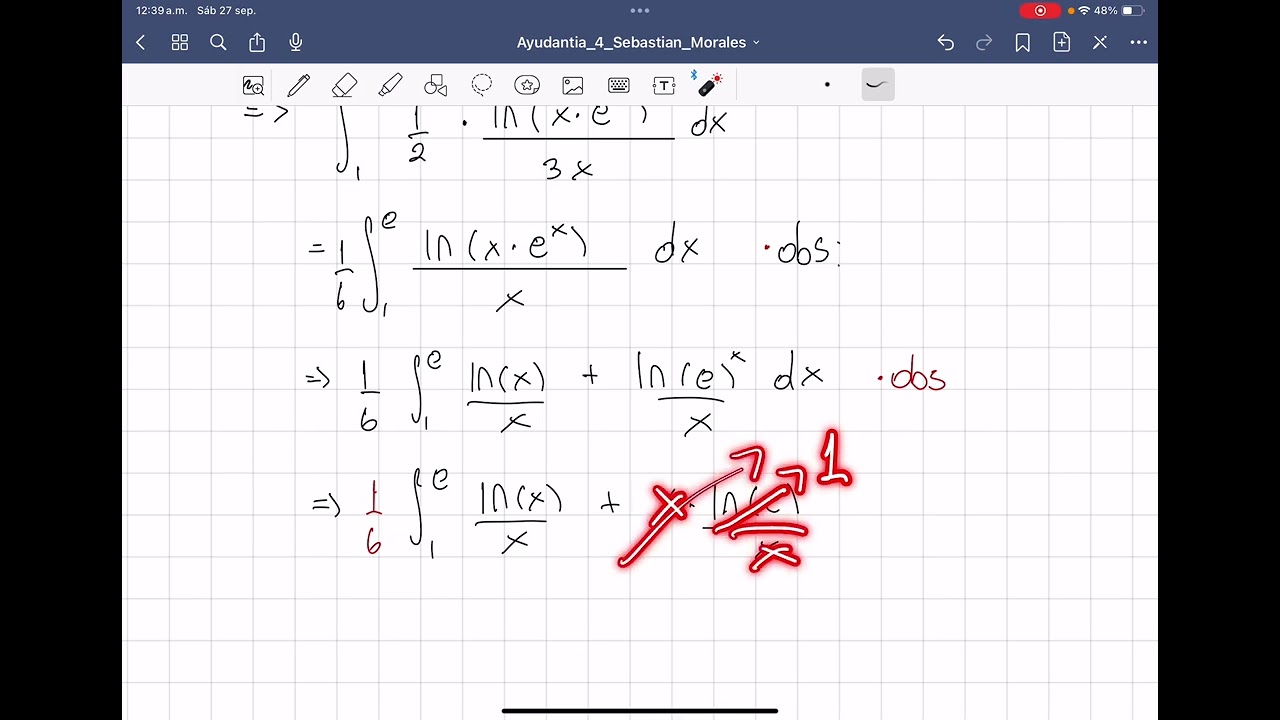 12:39 a.m. Sáb 27 sep.
48%
Ayudantia_4_Sebastian_Morales
=> ∫₁ 1/2 · ln(x·e )/3x dx
= 1/6 ∫₁ᵉ ln(x·eˣ)/x dx ·obs:
=> 1/6 ∫₁ᵉ ln(x)/x + ln(e)ˣ/x dx ·obs
=> 1/6 ∫₁ᵉ ln(x)/x + x·ln(e)/x 1